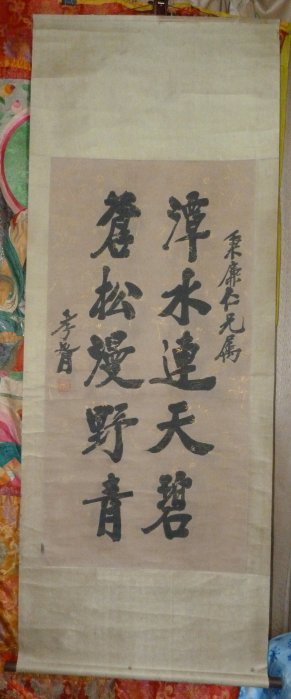 秉廉仁兄属
潭水連天碧
蒼松漫野青
孝胥